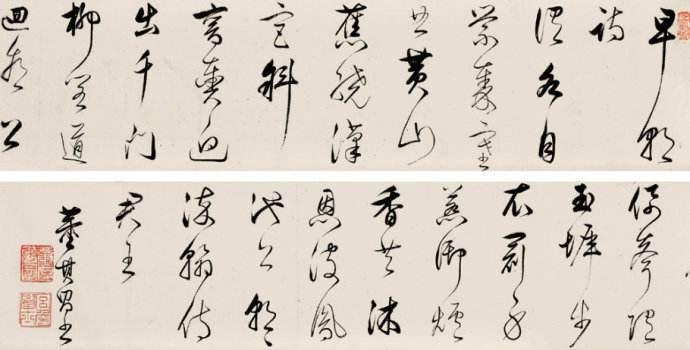 早朝
詩
渭水自
縈秦塞
曲黃山
舊繞漢
宮斜
鑾輿迥
出千門
柳閣道
迴看上
佩聲隨
玉墀步
衣冠身
惹御爐
香共沐
恩波鳳
池上朝々
染翰侍
君王
董其昌書